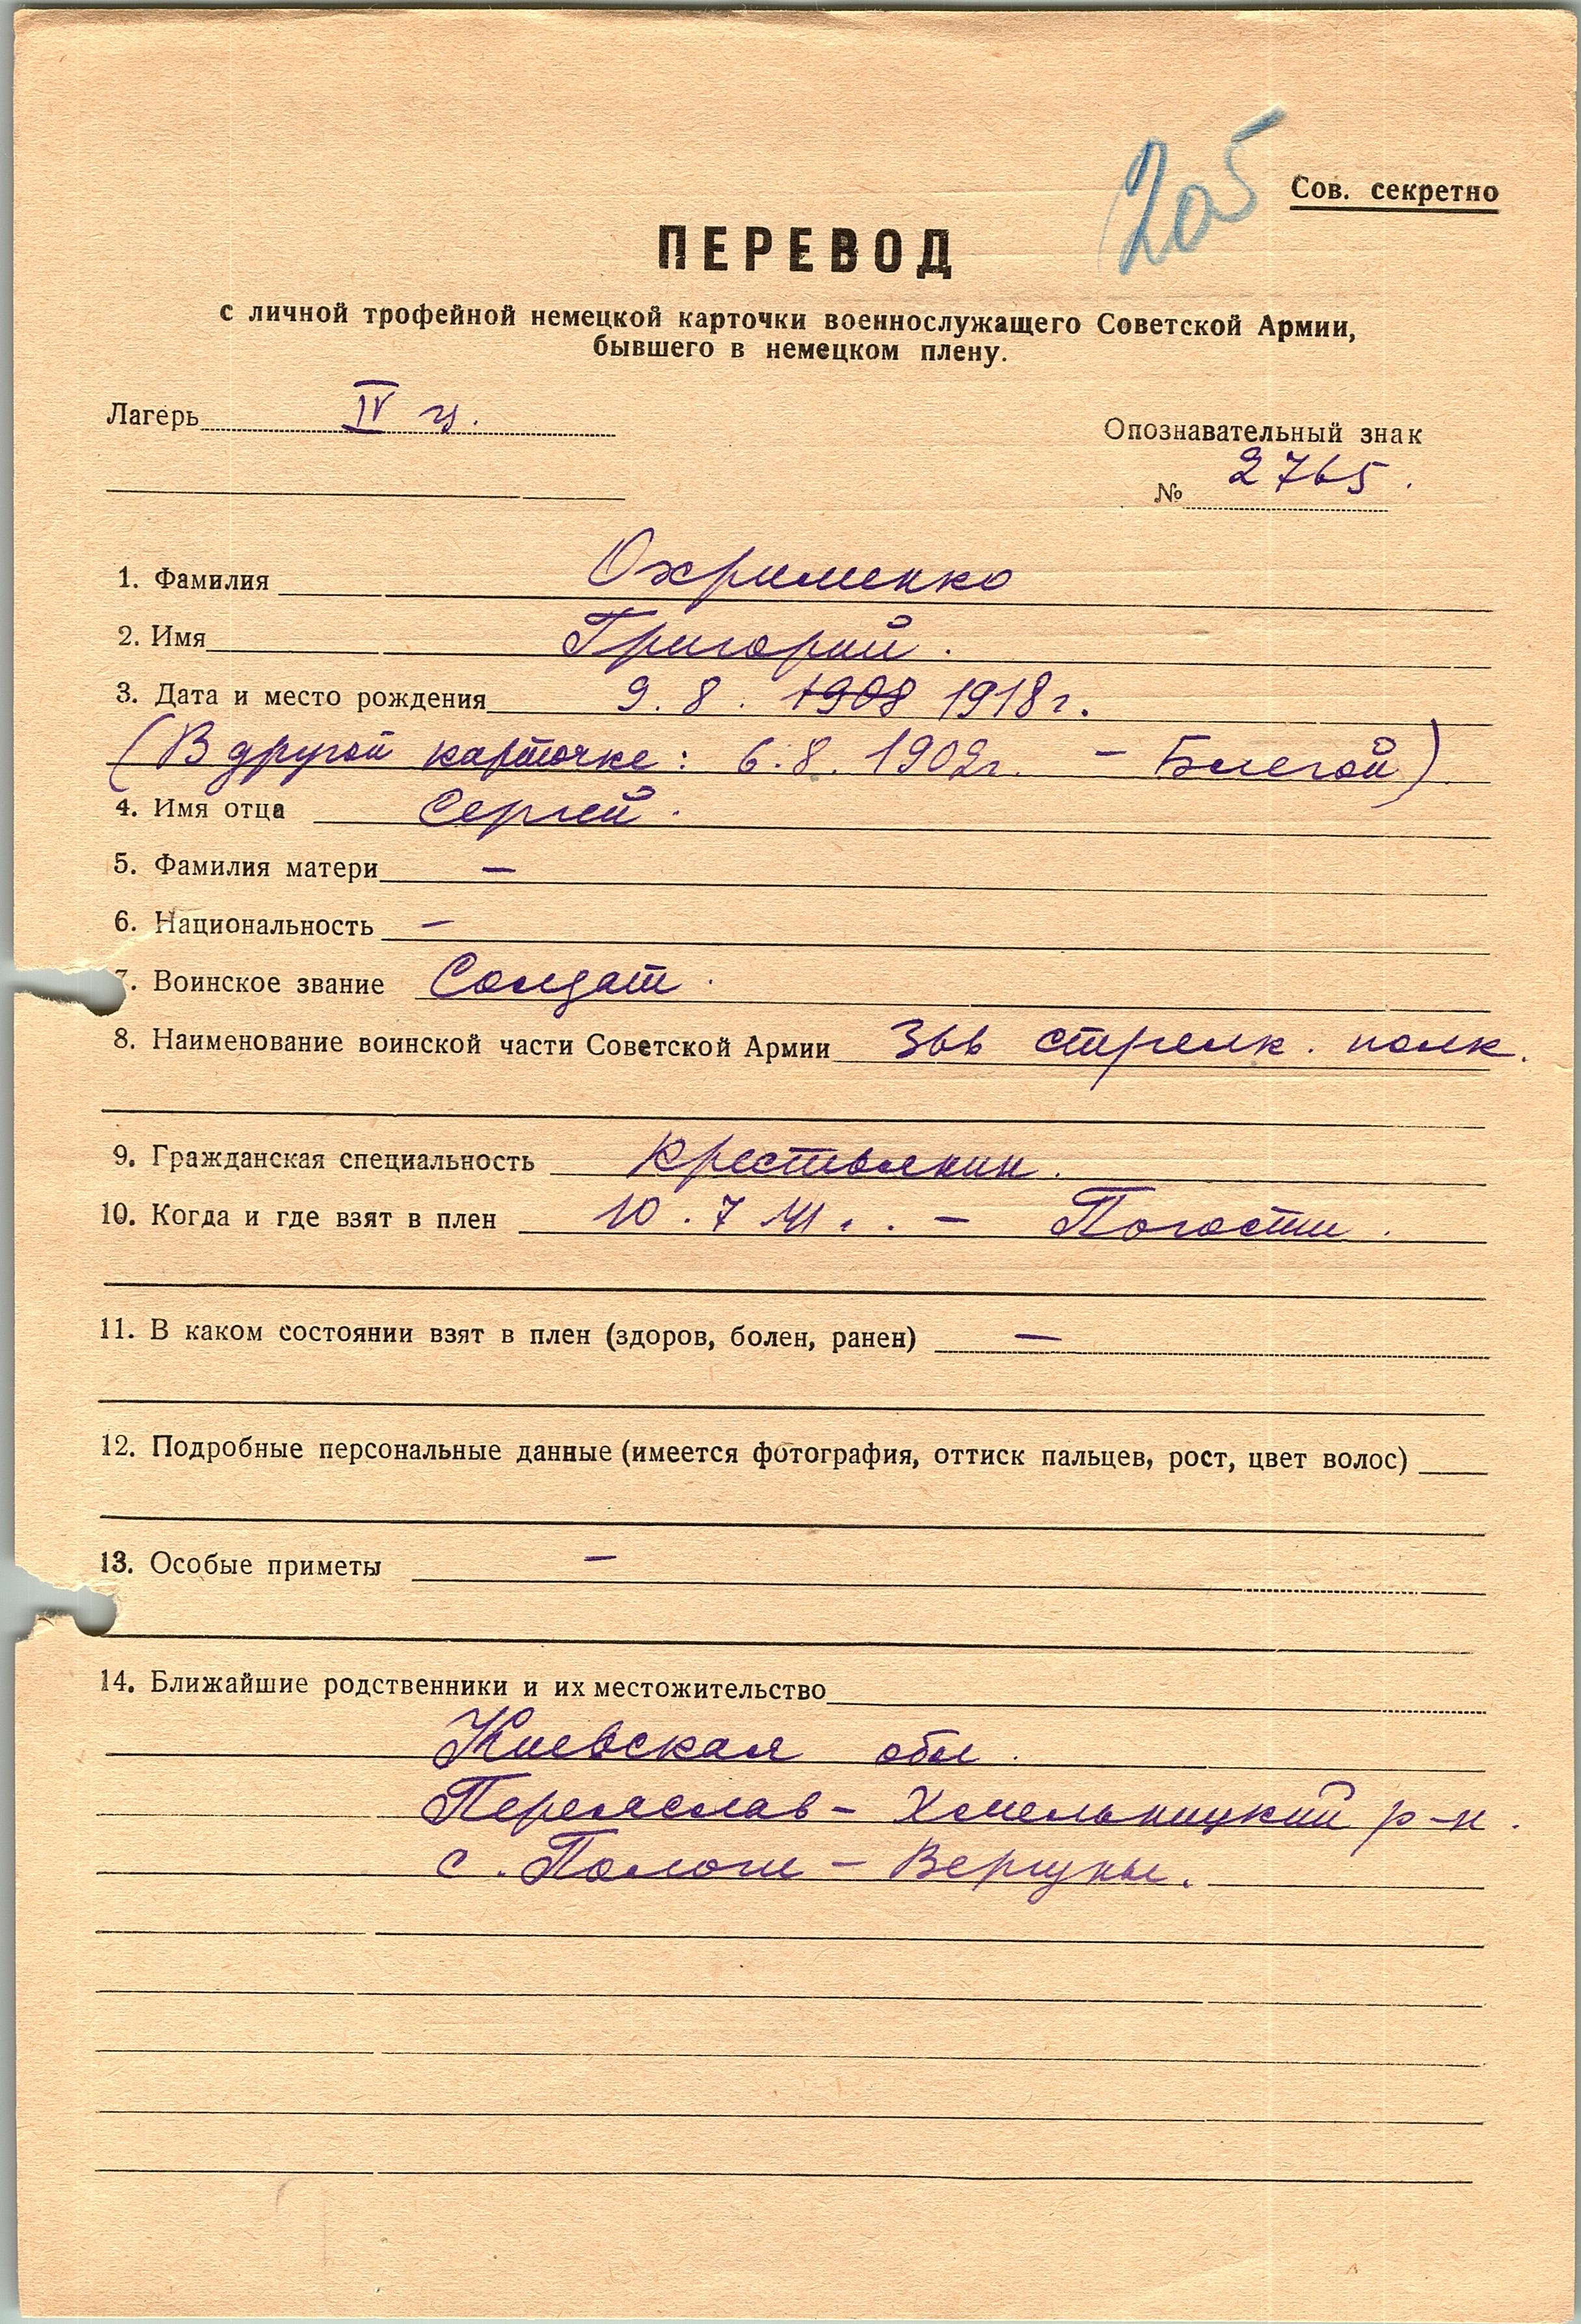 205
Сов. секретно
ПЕРЕВОД
с личной трофейной немецкой карточки военнослужащего Советской Армии,
бывшего в немецком плену.
Лагерь IV ц.
Опознавательный знак
№ 2765.
1. Фамилия Охрименко
2. Имя Григорий.
3. Дата и место рождения 9. 8. 1908 1918 г.
(В другой карточке: 6.8. 1902г. –
4. Имя отца Сергей.
5. Фамилия матери –
6. Национальность –
7. Воинское звание Солдат.
8. Наименование воинской части Советской Армии 366 стрелк. полк.
9. Гражданская специальность крестьянин.
10. Когда и где взят в плен 10. 7 41. – Погости.
11. В каком состоянии взят в плен (здоров, болен, ранен) –
12. Подробные персональные данные (имеется фотография, оттиск пальцев, рост, цвет волос)
13. Особые приметы –
14. Ближайшие родственники и их местожительство
Киевская обл.
Переяслав-Хмельницкий р-н.
с. Пологи-Вергуны.